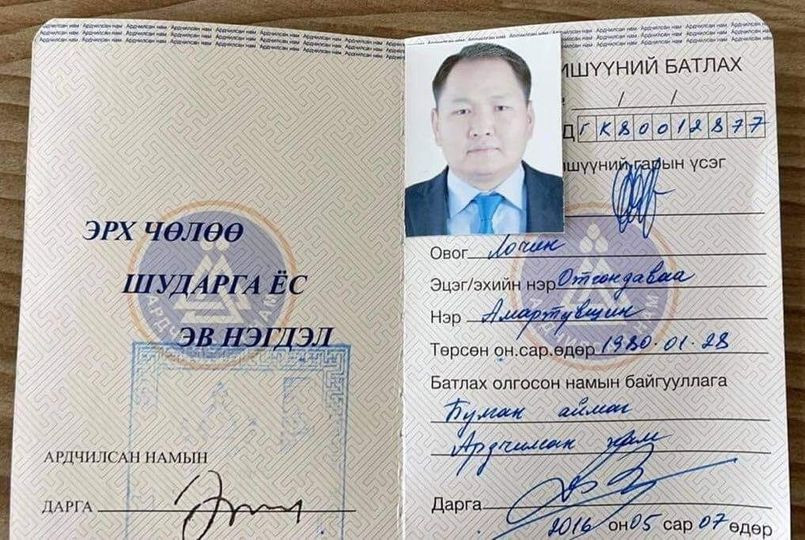 Ардчилсан нам Ардчилсан нам Ардчилсан нам Ардчилсан нам Ардчилсан нам
ЭРХ ЧӨЛӨӨ
ШУДАРГА ЁС
ЭВ НЭГДЭЛ
АРДЧИЛСАН НАМЫН
ДАРГА
ИШҮҮНИЙ БАТЛАХ
Д ГК80012877
ишүүний гарын үсэг
Овог Лочин
Эцэг/эхийн нэр Отгондаваа
Нэр Амартүвшин
Төрсөн он.сар.өдөр 1980.01.28
Батлах олгосон намын байгууллага
Булган аймаг
Ардчилсан нам
Дарга
2016 он 05 сар 07 өдөр